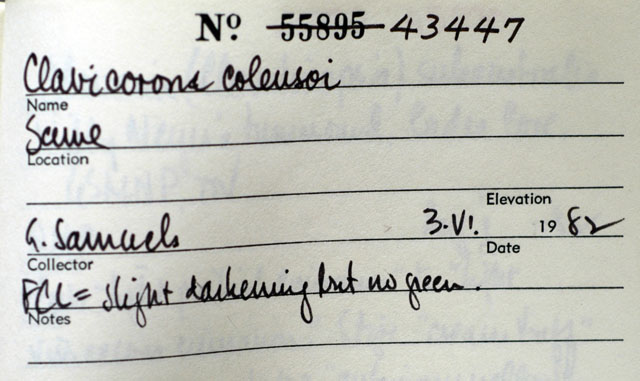 Nº 55895 43447
Clavicorona colensoi
Name
Same
Location
Elevation
G. Samuels 3.VI. 1982
Collector Date
FCL = slight darkening but no green.
Notes